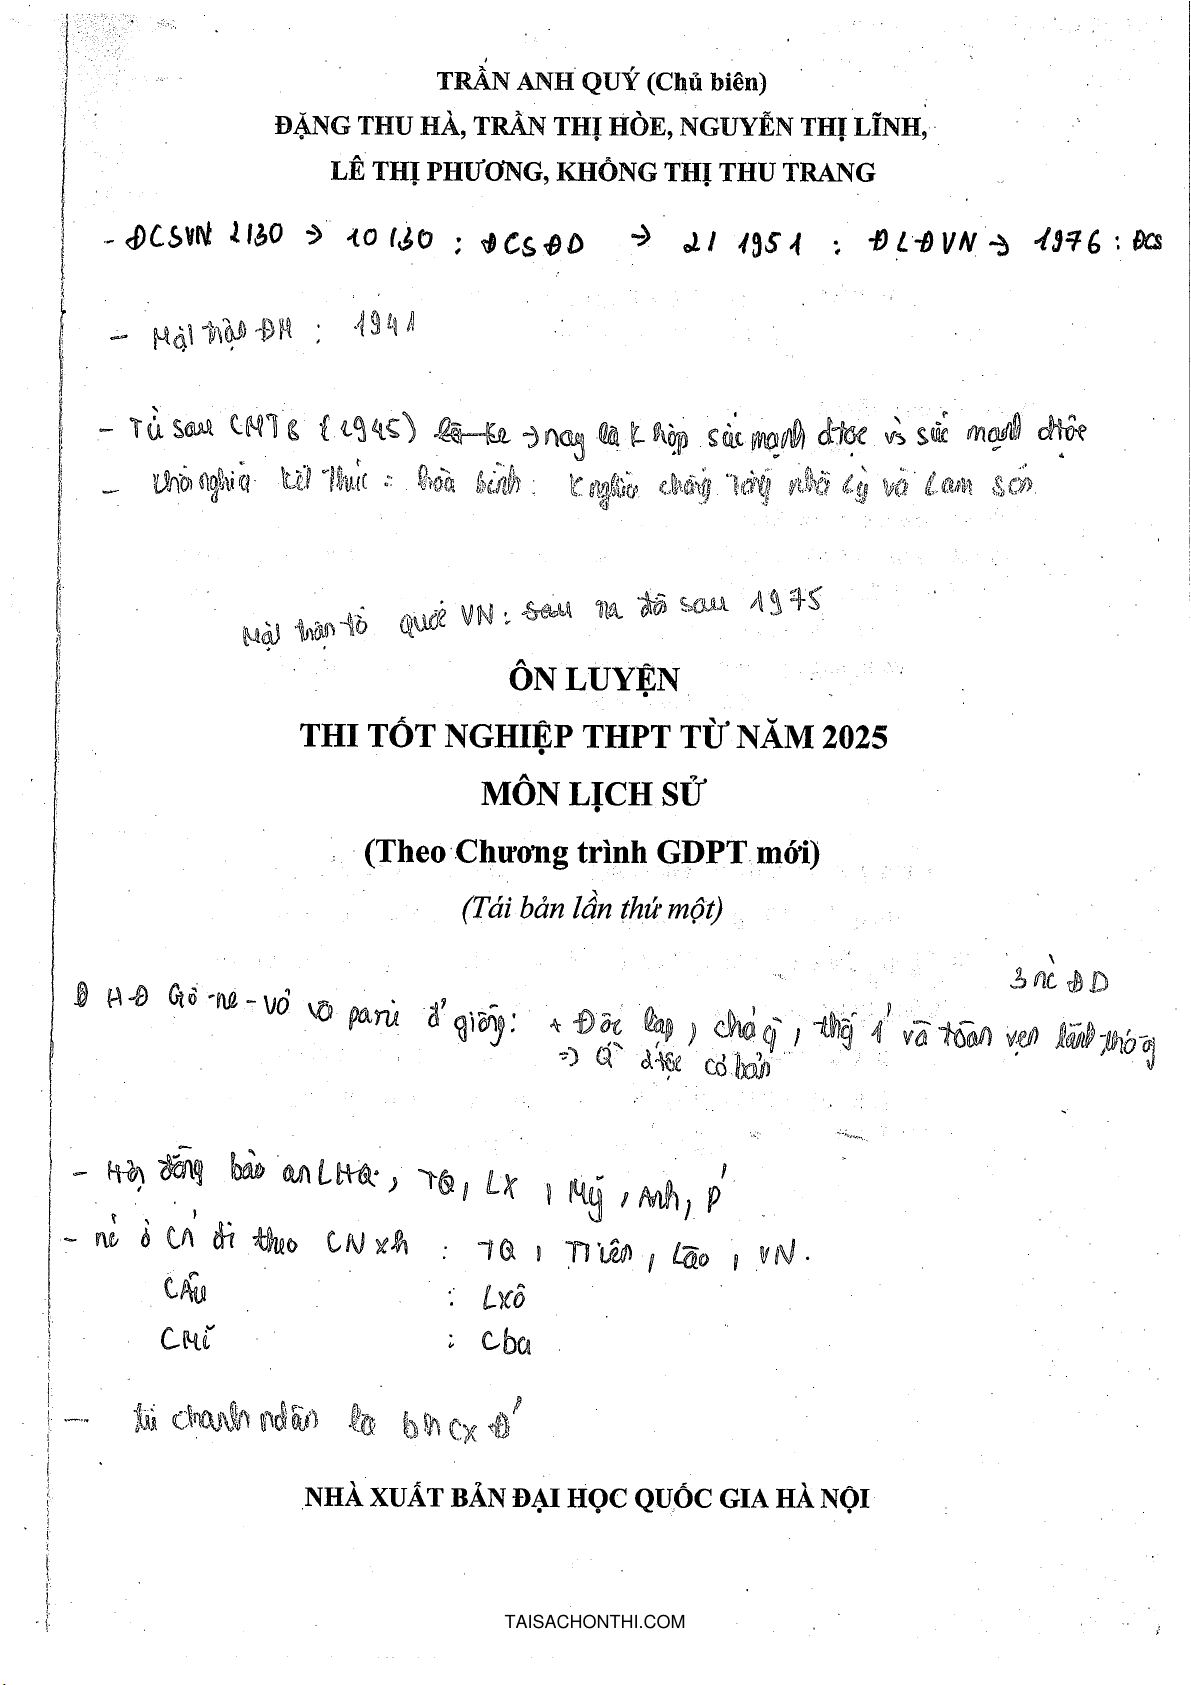 TRẦN ANH QUÝ (Chủ biên)
ĐẶNG THU HÀ, TRẦN THỊ HÒE, NGUYỄN THỊ LĨNH,
LÊ THỊ PHƯƠNG, KHỔNG THỊ THU TRANG
- ĐCSVN 2/30 → 10/30 : ĐCSĐD → 2/ 1951 : ĐLĐVN → 1976 : ĐCS
- Mặt trận ĐM : 1941
- Từ sau CMT8 (1945) → nay là k hợp sức mạnh dtộc vs sức mạnh dtộc
- khởi nghĩa kết thúc = hòa bình : k nghĩa chống Tống nhà Lý và Lam Sơn
Mặt trận tổ quốc VN : sau ra đời sau 1975
ÔN LUYỆN
THI TỐT NGHIỆP THPT TỪ NĂM 2025
MÔN LỊCH SỬ
(Theo Chương trình GDPT mới)
(Tái bản lần thứ một)
3 nc ĐD
HĐ Giơ-ne-vơ và pari giống : + Độc lập, chủ q, thg 1 và toàn vẹn lãnh thổ
=> Q dtộc cơ bản
- Hội đồng bảo an LHQ : TQ, LX, Mỹ, Anh, P
- nc ở CÁ đi theo CNxh : TQ, TTiên, Lào, VN.
CÂu : LXô
CMĩ : Cba
NHÀ XUẤT BẢN ĐẠI HỌC QUỐC GIA HÀ NỘI
TAISACHONTHI.COM